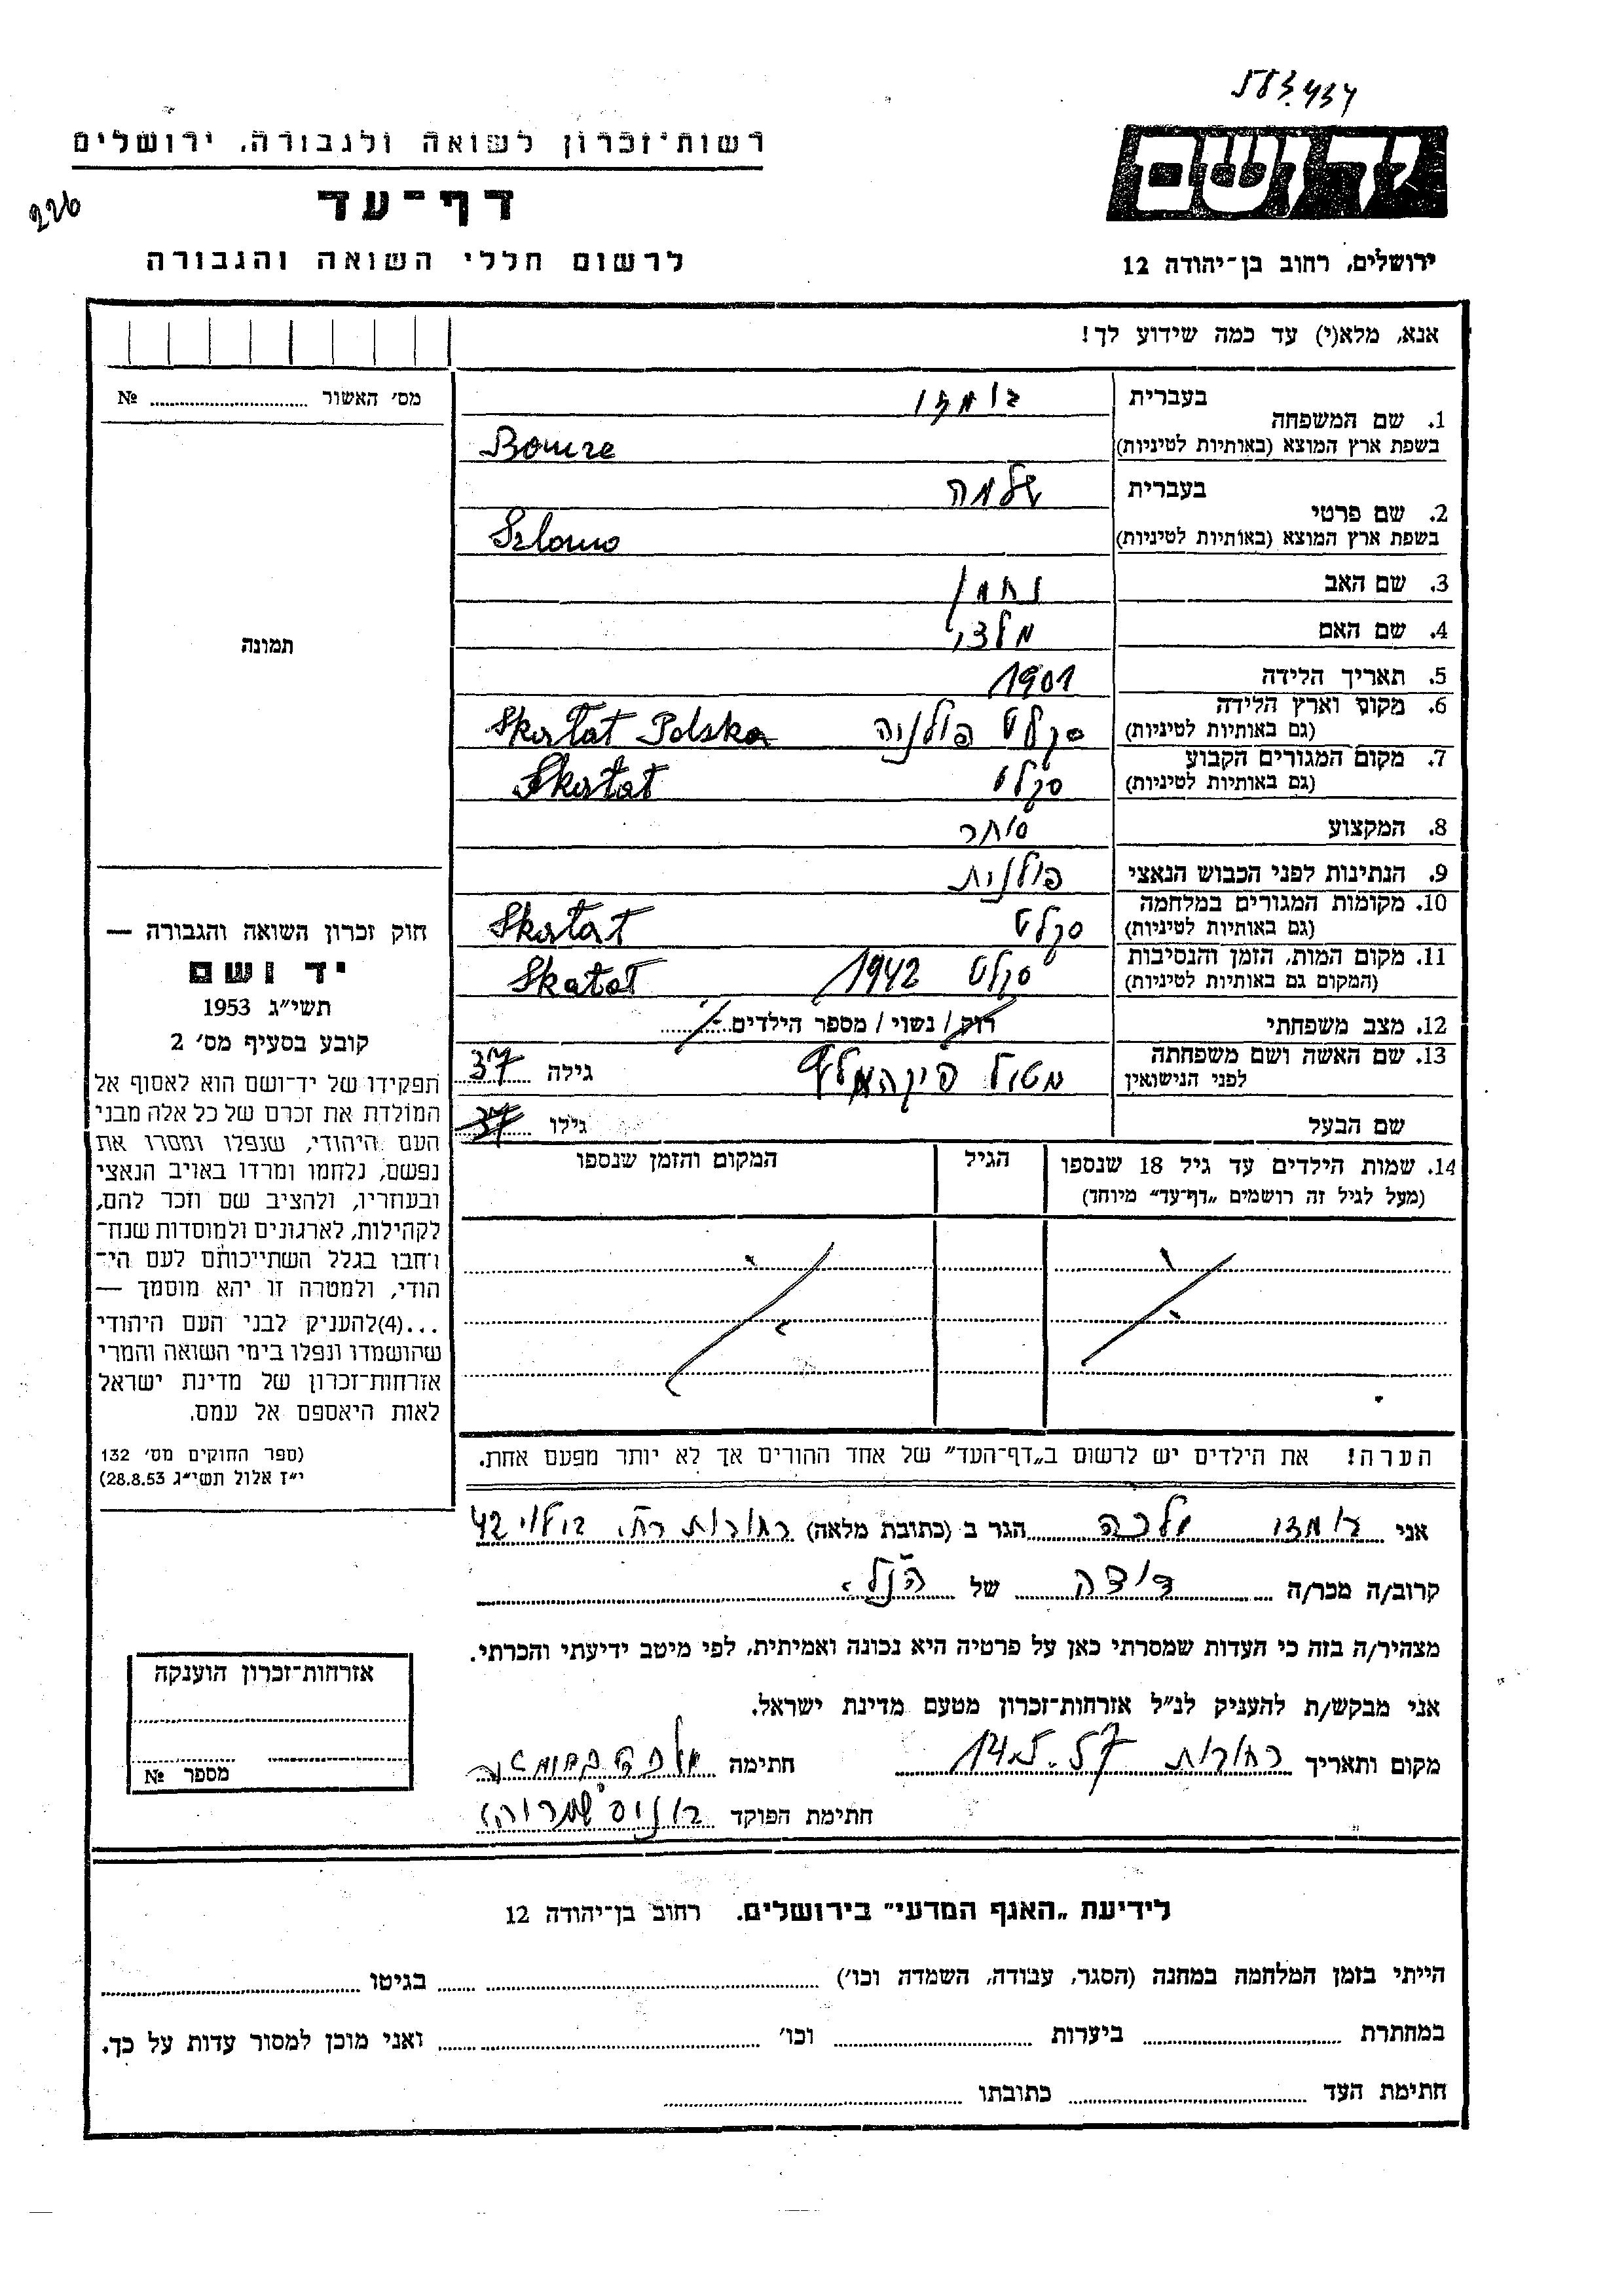 583.434
ידושם
רשות־זכרון לשואה ולגבורה, ירושלים
226
דף־עד
ירושלים, רחוב בן־יהודה 12
לרשום חללי השואה והגבורה
אנא, מלא(י) עד כמה שידוע לך!
מס׳ האשור № 
בעברית
1. שם המשפחה
בשפת ארץ המוצא (באותיות לטיניות) Bomze
בעברית שלמה
2. שם פרטי
בשפת ארץ המוצא (באותיות לטיניות) Szlomo
3. שם האב נחמן
4. שם האם
תמונה
5. תאריך הלידה 1901
6. מקום וארץ הלידה סקלט פולניה Skałat Polska
(גם באותיות לטיניות)
7. מקום המגורים הקבוע סקלט Skałat
(גם באותיות לטיניות)
8. המקצוע סוחר
9. הנתינות לפני הכבוש הנאצי פולנית
10. מקומות המגורים במלחמה סקלט Skałat
(גם באותיות לטיניות)
11. מקום המות, הזמן והנסיבות סקלט 1942 Skałat
(המקום גם באותיות לטיניות)
12. מצב משפחתי רוק / נשוי / מספר הילדים
13. שם האשה ושם משפחתה גילה 37
לפני הנישואין
שם הבעל גילו 37
14. שמות הילדים עד גיל 18 שנספו הגיל המקום והזמן שנספו
(מעל לגיל זה רושמים „דף־עד״ מיוחד)
חוק זכרון השואה והגבורה —
יד ושם
תשי״ג 1953
קובע בסעיף מס׳ 2
תפקידו של יד־ושם הוא לאסוף אל
המולדת את זכרם של כל אלה מבני
העם היהודי, שנפלו ומסרו את
נפשם, נלחמו ומרדו באויב הנאצי
ובעוזריו, ולהציב שם וזכר להם,
לקהילות, לארגונים ולמוסדות שנח־
רבו בגלל השתייכותם לעם הי־
הודי, ולמטרה זו יהא מוסמך —
...(4)להעניק לבני העם היהודי
שהושמדו ונפלו בימי השואה והמרי
אזרחות־זכרון של מדינת ישראל
לאות היאספם אל עמם.
(ספר החוקים מס׳ 132
י״ז אלול תשי״ג 28.8.53)
הערה! את הילדים יש לרשום ב„דף־העד״ של אחד ההורים אך לא יותר מפעם אחת.
אני מלכה הגר ב (כתובת מלאה) רחובות רח׳ 42
קרוב/ה מכר/ה דודה של הנ״ל
מצהיר/ה בזה כי העדות שמסרתי כאן על פרטיה היא נכונה ואמיתית, לפי מיטב ידיעתי והכרתי.
אני מבקש/ת להעניק לנ״ל אזרחות־זכרון מטעם מדינת ישראל.
מקום ותאריך רחובות 14.5.57 חתימה
חתימת הפוקד
אזרחות־זכרון הוענקה
מספר №
לידיעת „האגף המדעי״ בירושלים. רחוב בן־יהודה 12
הייתי בזמן המלחמה במחנה (הסגר, עבודה, השמדה וכו׳) בגיטו
במחתרת ביערות וכו׳ ואני מוכן למסור עדות על כך.
חתימת העד כתובתו